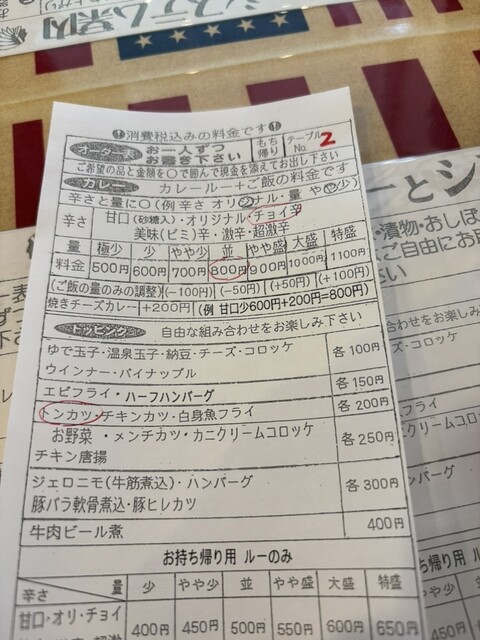 システム案内
!消費税込みの料金です!
オーダー お一人ずつお書き下さい もち帰り テーブルNo. 2
ご希望の品と金額を〇で囲んで現金を添えてお出し下さい
カレー カレールー+ご飯の料金です
辛さと量に〇(例 辛さ オリジナル・量 やや少)
辛さ 甘口(砂糖入)・オリジナル・チョイ辛
美味(ビミ)辛・激辛・超激辛
量 極少 少 やや少 並 やや盛 大盛 特盛
料金 500円 600円 700円 800円 900円 1000円 1100円
(ご飯の量のみの調整) (-100円) (-50円) (+50円) (+100円)
焼きチーズカレー +200円 (例 甘口少600円+200円=800円)
トッピング 自由な組み合わせをお楽しみ下さい
ゆで玉子・温泉玉子・納豆・チーズ・コロッケ
ウインナー・パイナップル 各100円
エビフライ・ハーフハンバーグ 各150円
トンカツ・チキンカツ・白身魚フライ 各200円
お野菜・メンチカツ・カニクリームコロッケ
チキン唐揚 各250円
ジェロニモ(牛筋煮込)・ハンバーグ
豚バラ軟骨煮込・豚ヒレカツ 各300円
牛肉ビール煮 400円
お持ち帰り用 ルーのみ
辛さ 量 少 やや少 並 やや盛 大盛 特盛
甘口・オリ・チョイ 400円 450円 500円 550円 600円 650円
ーとシ
・漬物・おしぼ
ご自由にお取
わせをお楽しみ
・コロッケ
フライ
クリームコロッケ